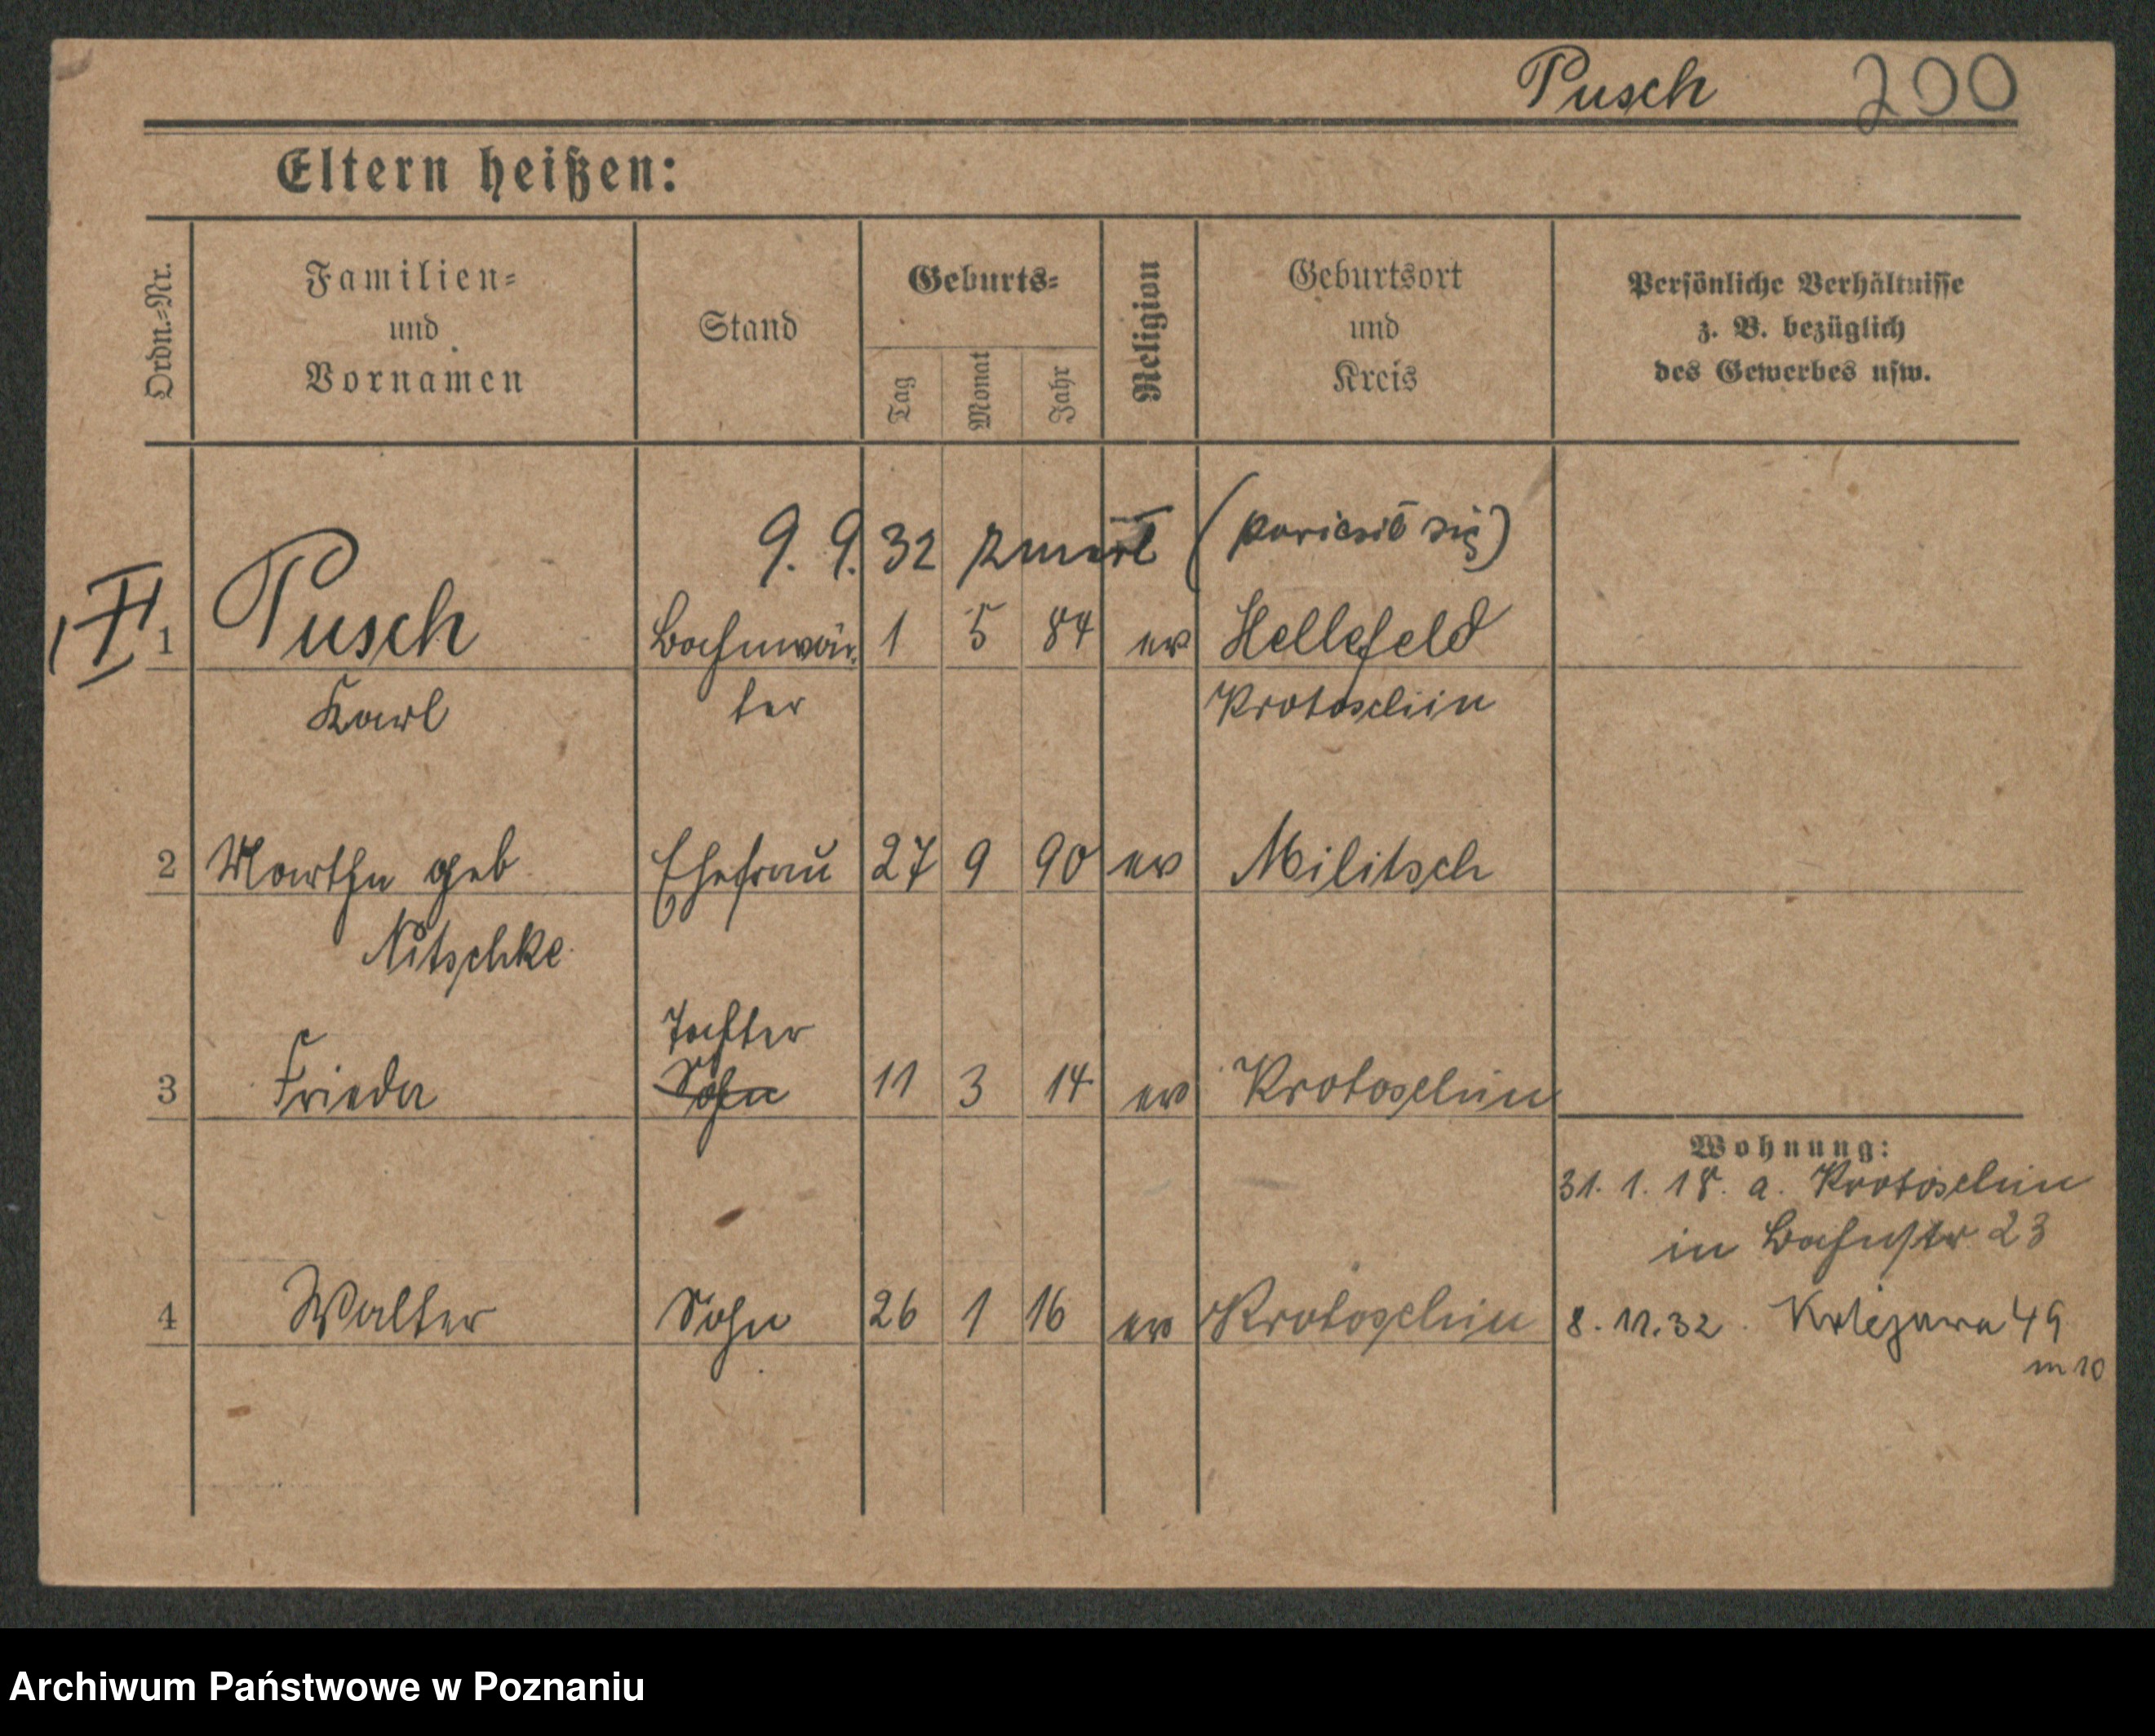 Pusch 200
Eltern heißen:
Ordn.-Nr.
Familien-
und
Vornamen
Stand
Geburts-
Tag
Monat
Jahr
Religion
Geburtsort
und
Kreis
Persönliche Verhältnisse
z. B. bezüglich
des Gewerbes usw.
9. 9. 32 zmarł (powiesił się)
1 Pusch Bahnwär 1 5 84 ev Hellefeld
Karl ter Krotoschin
2 Martha geb Ehefrau 27 9 90 ev Militsch
Nitschke
Tochter
3 Frieda Sohn 11 3 14 ev Krotoschin
Wohnung:
31. 1. 18. a. Krotoschin
in Bahnstr 23
4 Walter Sohn 26 1 16 ev Krotoschin 8. 11. 32. Kolejowa 49
m 10
Archiwum Państwowe w Poznaniu